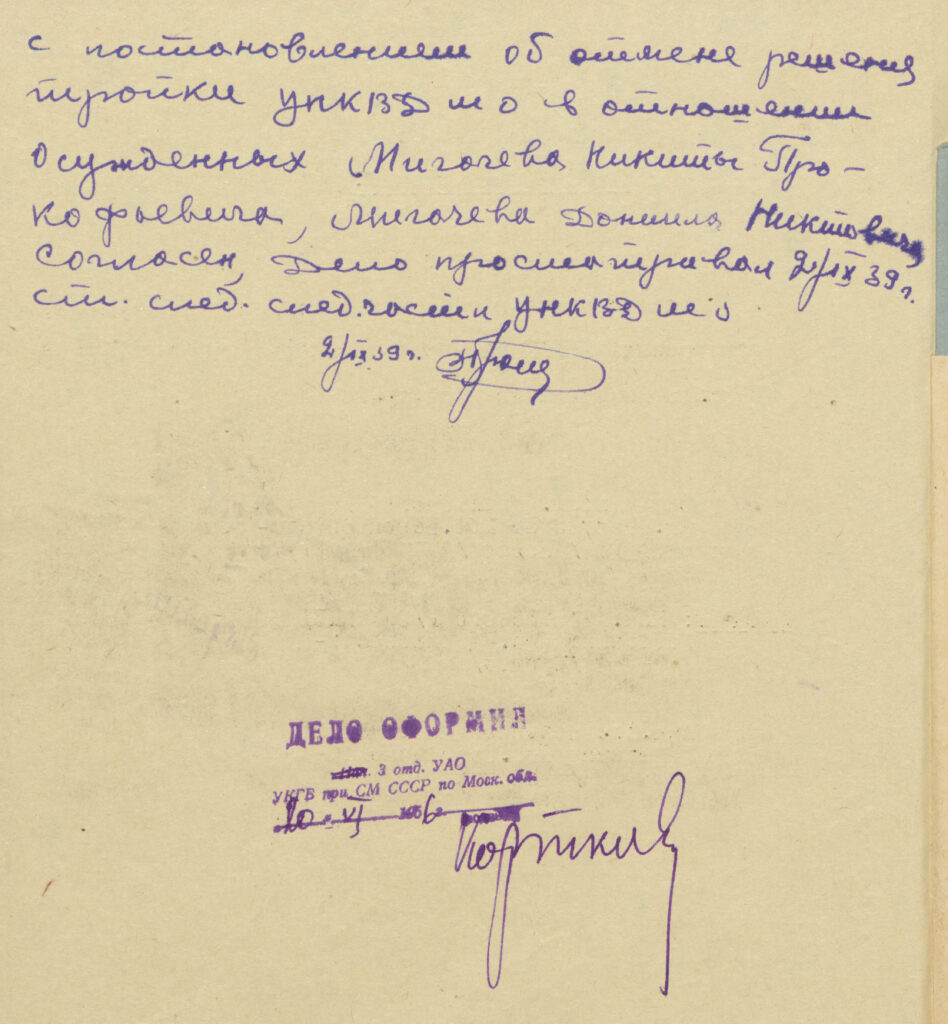 с постановлением об отмене решения
тройки УНКВД МО в отношении
осужденных Мигачева Никиты Про-
кофьевича, Мигачева Даниила Никитовича
Согласен, Дело просматривал 2/IX 39 г.
ст. след. след.части УНКВД МО
2/IX 39 г.
ДЕЛО ОФОРМИЛ
3 отд. УАО
УКГБ при СМ СССР по Моск. обл.
20 VI 1956 г.